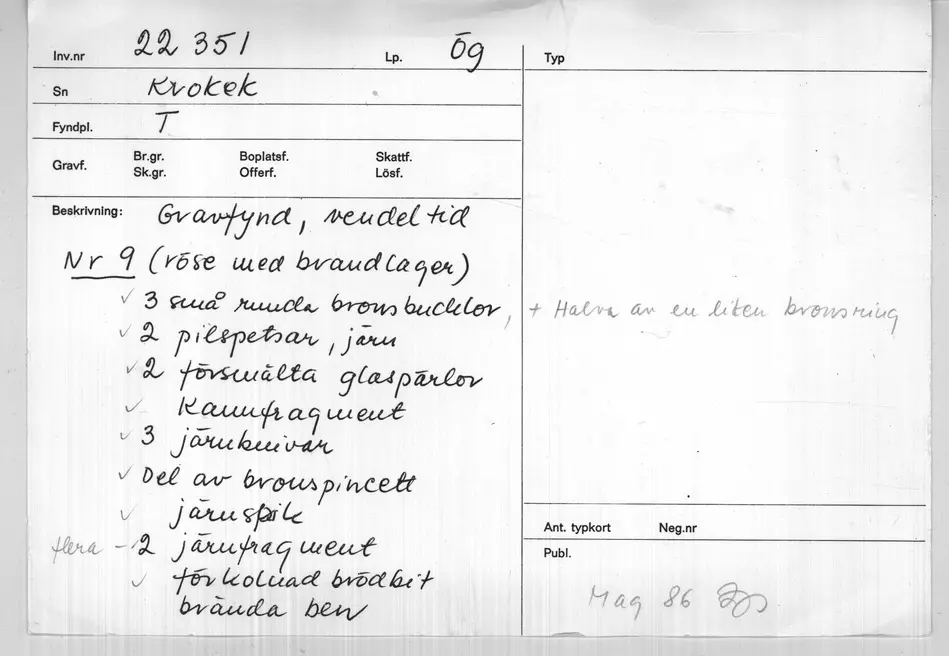 Inv.nr 22 351 Lp. Ög
Sn Krokek
Fyndpl. T
Gravf. Br.gr. Boplatsf. Skattf.
Sk.gr. Offerf. Lösf.
Beskrivning: Gravfynd, vendeltid
Nr 9 (röse med brandlager)
✓ 3 små runda bronsbucklor,
✓ 2 pilspetsar, järn
✓ 2 försmälta glaspärlor
✓ Kamfragment
✓ 3 järnknivar
✓ Del av bronspincett
✓ järnspik
flera - 2 järnfragment
✓ förkolnad brödbit
brända ben
Typ
+ Halva av en liten bronsring
Ant. typkort Neg.nr
Publ.
Mag 86